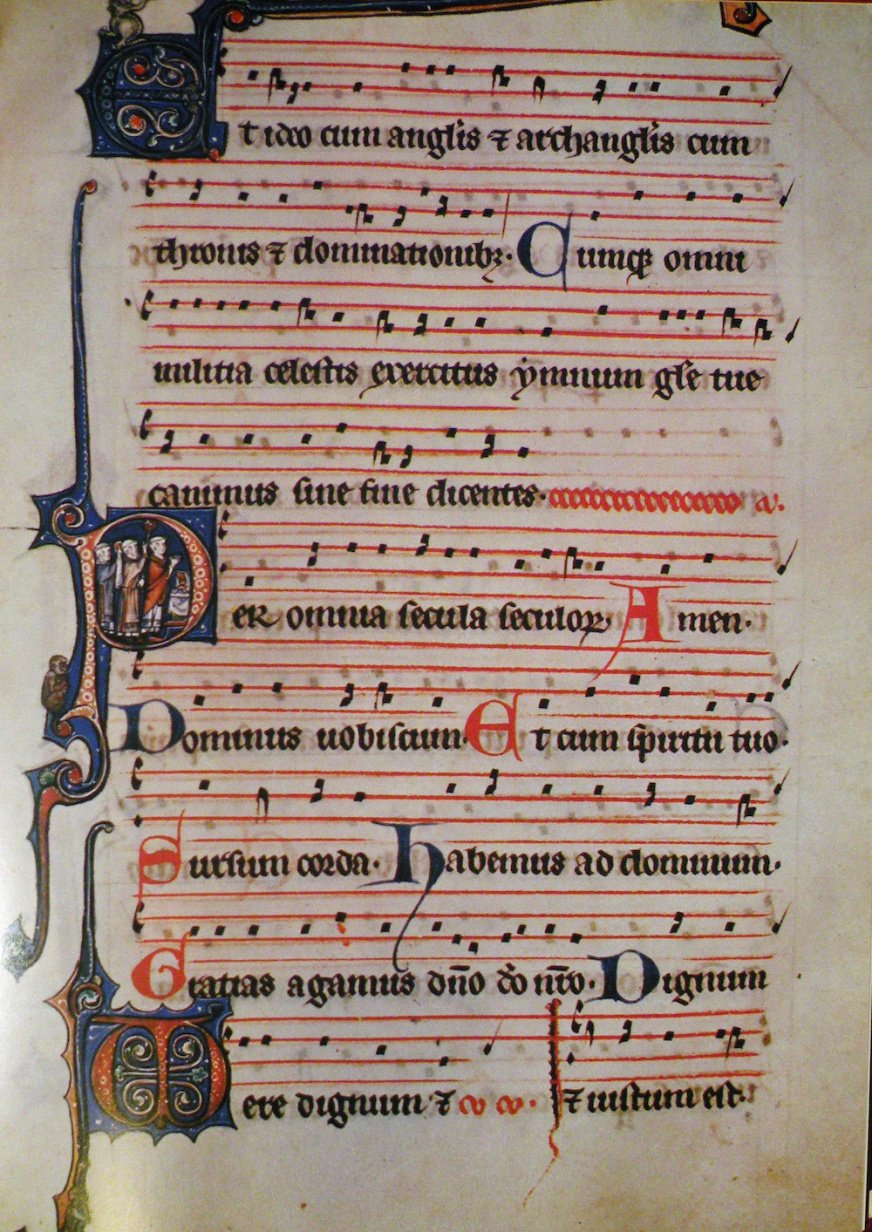 Et ideo cum anglis ⁊ archanglis cum
thronis ⁊ dominationibꝫ. Cumqꝫ omni
militia celestis exercitus ẏmnum głe tue
canimus sine fine dicentes.
Per omnia secula seculoꝝ. Amen.
Dominus uobiscum. Et cum spiritu tuo.
Sursum corda. habemus ad dominum.
Gratias agamus dño dõ nr̃o. Dignum
Uere dignum ⁊ ⁊ iustum est.